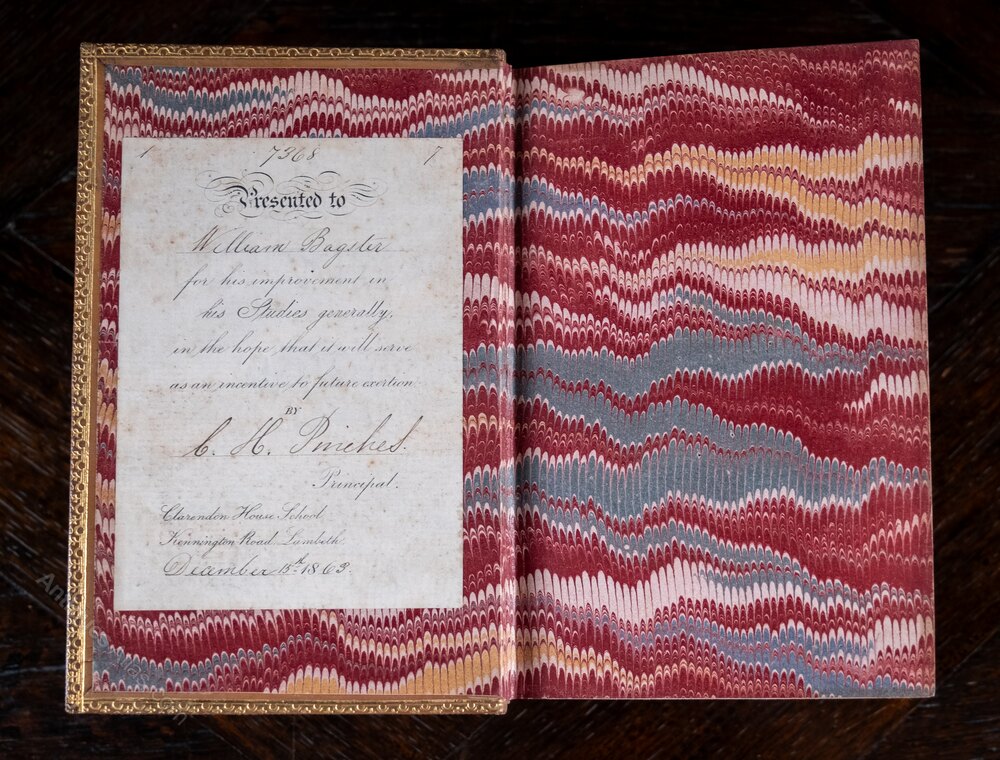 1 7368 7
Presented to
William Bagster
for his improvement in
his Studies generally,
in the hope that it will serve
as an incentive to future exertion
BY
C. H. Pinches.
Principal.
Clarendon House School
Kennington Road, Lambeth
December 15th 1863.